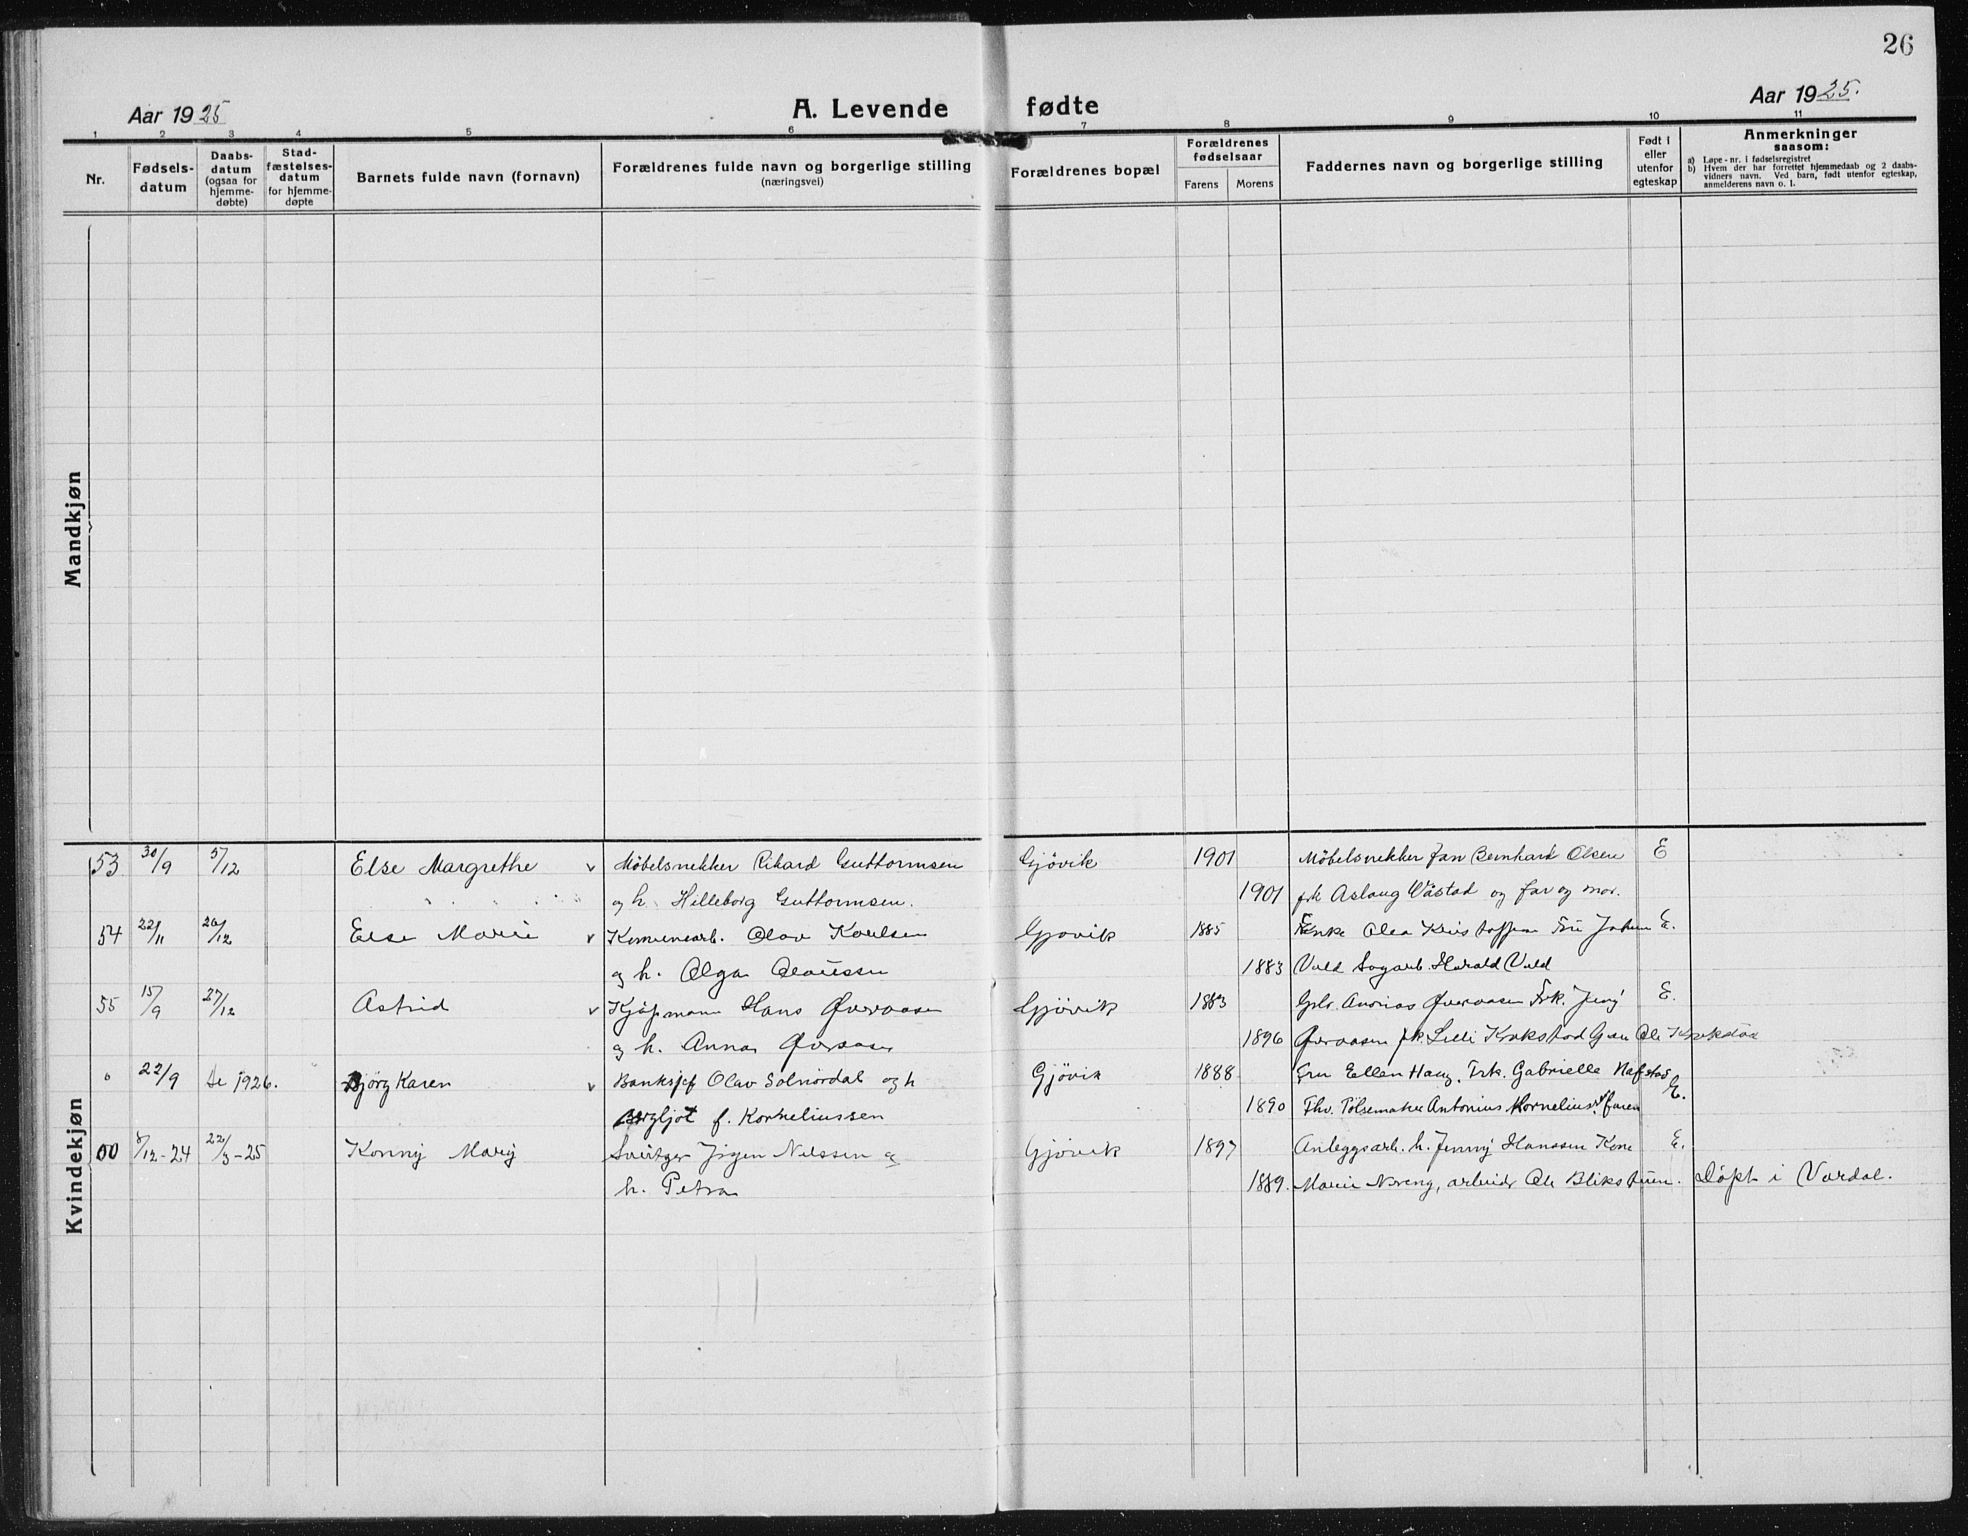 26
Aar 1925
A. Levende fødte
Aar 1925.
1 2 3 4 5 6 7 8 9 10 11
Nr.
Fødsels-
datum
Daabs-
datum
(ogsaa for
hjemme-
døbte)
Stad-
fæstelses-
datum
for hjemme-
døpte
Barnets fulde navn (fornavn)
Forældrenes fulde navn og borgerlige stilling
(næringsvei)
Forældrenes bopæl
Forældrenes
fødselsaar
Farens Morens
Faddernes navn og borgerlige stilling
Født i
eller
utenfor
egteskap
Anmerkninger
saasom:
a) Løpe-nr. i fødselsregistret
b) Hvem der har forrettet hjemmedaab og 2 daabs-
vidners navn. Ved barn, født utenfor egteskap,
anmelderens navn o. l.
Mandkjøn
Kvindekjøn
53 30/9 5/12 Else Margrethe v Møbelsnekker Rikard Guttormsen Gjövik 1901 Møbelsnekker Jan Bernhard Olsen E
og h. Hilleborg Guttormsen. 1901 frk Aslaug Wästad og far og mor.
54 22/11 26/12 Else Marie v Komunearb. Olav Karlsen Gjøvik 1885 Enke Olea Kristoffersen Fru Johan E.
og h. Olga Olaussen 1883 Vold Sagarb. Harald Vold
55 15/9 27/12 Astrid v Kjøpmann Hans Øveraasen Gjövik 1883 Frk. Jenny E.
og h. Anna Øveraasen 1896 Øveraasen frk. Lilli Krokstad Ole Krokstad
22/9 Se 1926. Bjørg Karen v Banksjef Olav Solnørdal og h Gjøvik 1888 Fru Ellen Haug. Frk. Gabrielle Nafstad E.
Bergljot f. Korneliussen 1890 Thv. Pølsemaker Antonius Kornelius. faren
00 8/12-24 22/3-25 Konny Mary Jørgen Nilssen og Gjøvik 1897 Anleggsarb. h. Jenny Hanssen Kone E.
h. Petra 1889. Marie Noreng, arbeider Ole Blikstuen. Døpt i Vardal.